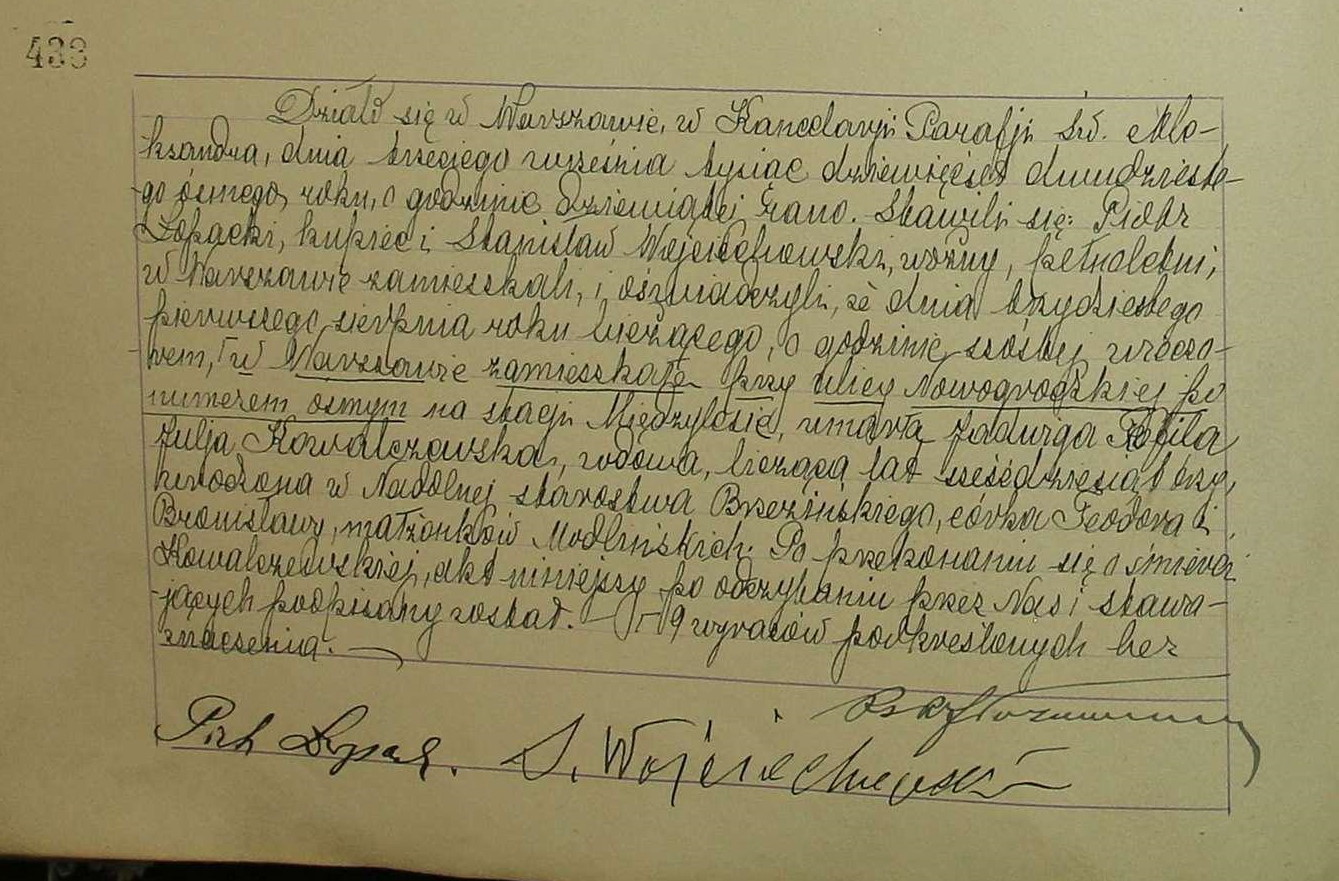 433
Działo się w Warszawie, w Kancelarji Parafji św. Ale-
ksandra, dnia trzeciego września tysiąc dziewięćset dwudzieste-
go ósmego roku, o godzinie dziewiątej rano. Stawili się: Piotr
Łopacki, kupiec i Stanisław Wojciechowski, woźny, pełnoletni,
w Warszawie zamieszkali, i oświadczyli, że dnia trzydziestego
pierwszego sierpnia roku bieżącego, o godzinie szóstej wieczo-
rem, w Warszawie zamieszkała przy ulicy Nowogrodzkiej po
numerem ósmym na stacji Międzylesie, umarła Jadwiga Teofila
Julja Kowalczewska, wdowa, licząca lat sześćdziesiąt trzy,
urodzona w Nadolnej starostwa Brzezińskiego, córka Teodora i
Bronisławy, małżonków Modlińskich. Po przekonaniu się o śmierci
Kowalczewskiej, akt niniejszy po odczytaniu przez Nas i stawa-
jących podpisany został. — 9 wyrazów podkreślonych bez
znaczenia. —
Piotr Łopacki. S. Wojciechowski